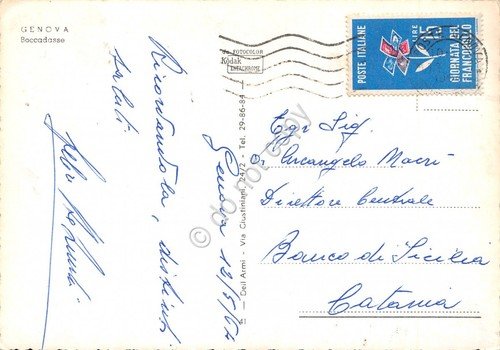 GENOVA
Boccadasse
da FOTOCOLOR
Kodak
EKTACHROME
POSTE ITALIANE
LIRE 15
GIORNATA DEL
FRANCOBOLLO
Ricordandola, distinti
saluti
Genova 12/5/67
Dell Armi - Via Giustiniani, 24/2 - Tel. 29-86-84
Egr Sig.
Arcangelo Macrì
Direttore Centrale
Banco di Sicilia
Catania
© do not copy